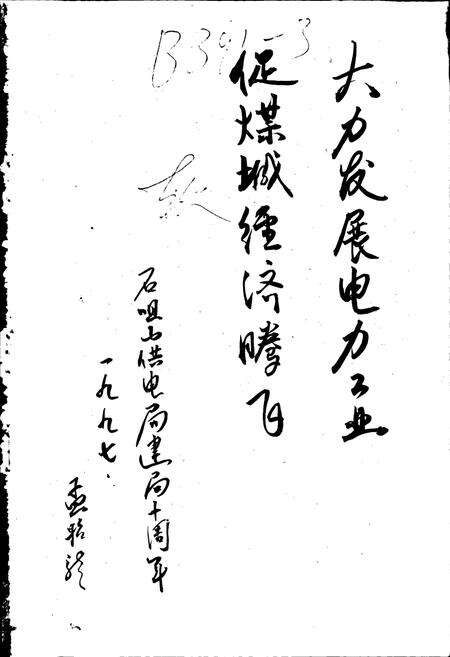 大力发展电力工业
促煤城经济腾飞
石咀山供电局建局十周年
一九九七.